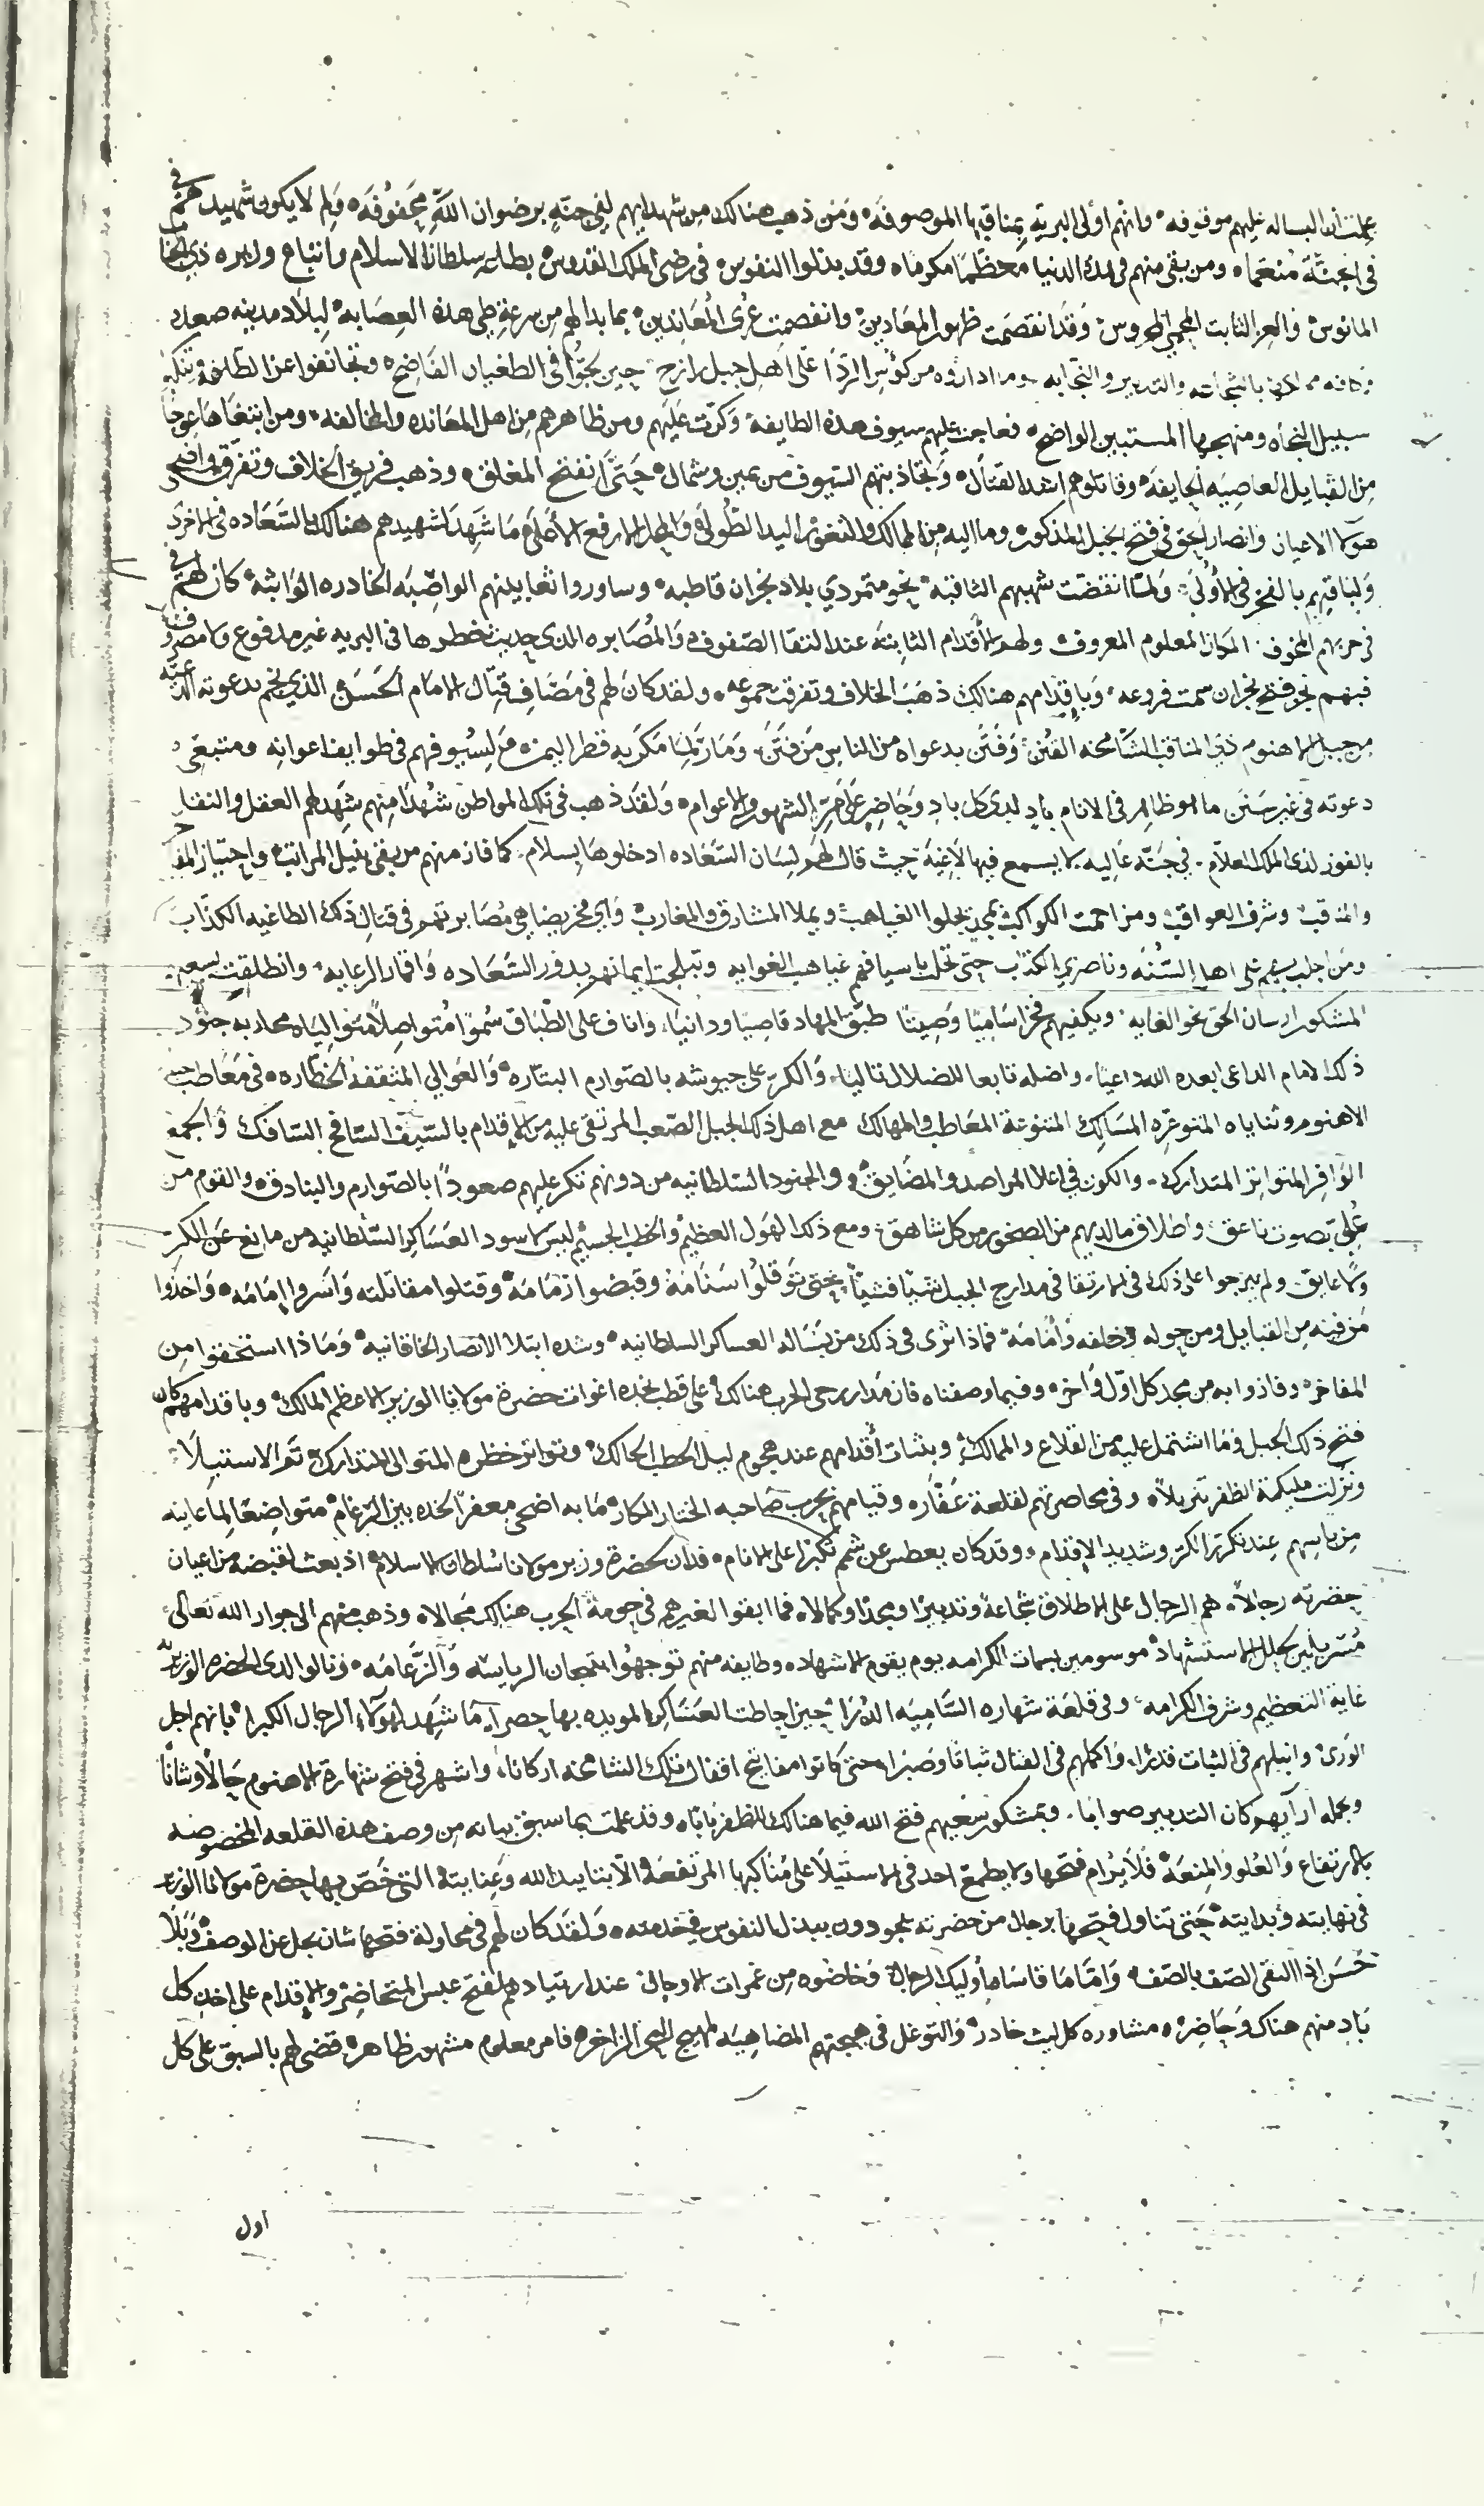 علمت ان البساله عليهم موقوفه وانهم أولى البريه بمناقبها الموصوفه ومن ذهب هنالك من شهدايهم لفي جنةٍ برضوان الله محفوفه ولم لا يكون شهيدهم في
في الجنة منعما ومن بقي منهم في تلك الدنيا معظّمًا مكرما وقد بذلوا النفوس في رضى الملك القدوس بطاعة سلطان الاسلام واتباع وزيره ذي
المانوس والعز الثابت المحروس وقد انقصمت ظهور المعادين وانفصمت عُرى المعاندين بما بدا لهم من سرعة طي هذه العصابه لبلاد مدينه صعده
وكافه والتدبير والنجابه وما اداروه من كؤس الردا على اهل جبل رازح حين لجّوا في الطغيان الفاضح وتجانفوا عن الطاعة
سبيل النجاه ومنهجها المستبين الواضح فعاجت عليهم سيوف هذه الطايفة وكرّت عليهم ومن ظاهرهم من اهل المعانده والمخالفه ومن ابتغاها عوجا
من القبايل العاصيه الجايفه وقاتلوهم اشد القتال وتجاذبتهم السيوف من يمين وشمال حتى انفتح المغلق وذهب فريق الخلاف وتفرق
هولا الاعيان وانصار الحق في فتح الجبل المذكور وما اليه من الممالك والثغور اليد الطولى والمحل الارفع الأعلى ما شهد لشهيدهم هنالك بالسعاده في الاخرى
ولباقيهم بالفخر في الأولى ولما انقضت شهبهم الثاقبة نحو متمردي بلاد نجران قاطبه وساوروا ثعابينهم الواصبه الخادره الواثبة كان لهم في
في حربهم المخوف المكان المعلوم المعروف ولهم الأقدام الثابته عند التقا الصفوف والمصابره الذي حديث خطرها في البريه غير مدفوع ولا مصروف
فبهم نحو فتح نجران سمت فروعه وباقدامهم هنالك ذهب الخلاف وتفرقت جموعه ولقد كان لهم في مصاف قتال الامام الحسن الذي نجم بدعوته
من جبل الاهنوم ذي المناقب الشامخه القنن وفتن بدعواه من الناس من فتن وما زلنا مكريه قطر اليمن من لسيوفهم في طوايف اعوانه ومتبعي
دعوته في غير سنن ما هو ظاهر في الانام باد لدى كل باد وحاضر على مرّ الشهور والاعوام ولقد ذهب في تلك المواطن شهدا منهم شهد لهم العقل والنقل
بالفوز لدى الملك العلام في جنة عاليه لا يسمع فيها لاغيه حيث قال لهم لسان السعاده ادخلوها بسلام كما فاز منهم من بقي بنيل المراتب واحتياز
والمناقب وشرف العواقب ومزاحمت الكواكب بمجد يجلوا الغياهب ويملا المشارق والمغارب واي فخر يضاهي مصابرتهم في قتال ذلك الطاغيه الكذاب
ومن اجلب بسعيهم على اهل السنه وناصري الكتاب حتى تجلت باسيافهم غياهب الغوايه وتبلجت ايمانهم بدور السعاده واقمار الرعايه وانطلقت بسعيهم
المشكور ارسان الحق نحو الغايه ويكفيهم فخرا ساميا وصيتا طبق المهاد قاصيا ودانيا واناف على الطباق سموا متواصلا متواليا محاربه جنود
ذلك الامام الداعي ابعده الله داعيا واضله تابعا للضلال تاليا والكر على جيوشه بالصوارم البتاره والعوالي المثقفه الخطاره في معاطب جبل
الاهنوم وثناياه المتوعره المسالك المتنوعة المعاطب والمهالك مع اهل ذلك الجبل الصعب المرتقى عليه من الاقدام بالسيف السافح السافك والجمع
الوافر المتواتر المتدارك والكون في اعلا المراصد والمضايق والجنود السلطانيه من دونهم تكر عليهم صعودا بالصوارم والبنادق والقوم من
علي بصوت ناعق واطلاق مالديهم من الصخور من كل شاهق ومع ذلك الهول العظيم والخطب الجسيم ليس لاسود العساكر السلطانيه من مانع عن الكر
ولا عايق ولم يبرحوا على ذلك في الارتقا في مدارج الجبل شيا فشيا حتى توقلوا سنامه وقبضوا زمامه وقتلوا مقاتلته وأسروا إمامه واخذوا
من فيه من القبايل ومن حوله وخلفه وأمامه فماذا ترى في ذلك من بسالة العساكر السلطانيه وشده ابتلا الانصار الخاقانيه وماذا استحقوا من
المفاخر وفازوا به من مجد كل اول وآخر وفيما وصفناه فان مدار رحى الحرب هنالك على قطب نجده اغوات حضرة مولانا الوزير الاعظم المالك وباقدامهم كان
فتح ذلك الجبل وما اشتمل عليه من القلاع والممالك وبثبات أقدامهم عند هجوم ليل الخطب الحالك وتواتر خطره المتوالي المتدارك تم الاستيلا
ونزلت مليكة الظفر تنزيلا وفي محاصرتهم لقلعة عفار وقيامهم بحرب صاحبه الختار المكار ما به اضحى معفرا لخده بين الرغام متواضعا لما عاينه
من باسهم عند تكرير الكر وشديد الإقدام وقد كان يعطس عن شمم تكبرا على الانام فدان لحضرة وزير مولانا سلطان الاسلام اذ بعث لقبضه من اعيان
حضرته رجالا هم الرجال على الاطلاق شجاعة وتدبيرا ومجدا وكمالا فما ابقوا لغيرهم في حومة الحرب هنالك مجالا وذهب منهم الى جوار الله تعالى
متسربلين بحلل الاستشهاد موسومين بسمات الكرامه يوم يقوم الاشهاد وطايفه منهم توجهوا بتيجان الرياسه والزعامه ونالوا لدى الحضره الوزيريه
غاية التعظيم وشرف الكرامه وفي قلعة شهاره الساميه الذرا حين احاطت العساكر المويده بها حصرا ما شهد لهولاء الرجال الكبرا بانهم اجل
الورى وانبلهم في الثبات قدرا واكملهم في القتال ثباتا وصبرا حتى كانوا مفاتيح اقفال تلك الشامخه اركانا واشهر في فتح شهارة الاهنوم حالا وشانا
وبجمله ارآيهم كان التدبير صوابا وبمشكور سعيهم فتح الله فيما هنالك للظفر بابا وقد علمت بما سبق بيانه من وصف هذه القلعه المخصوصه
بالارتفاع والعلو والمنعة فلا يرام فتحها ولا يطمع احد في الاستيلا على مناكبها المرتفعة الا بتاييد الله وعنايته التي خص بها حضرة مولانا الوزير
في نهايته وبدايته حتى تناول فتحها برجال من حضرته يجودون ببذل النفوس في خدمته ولقد كان لهم في محاولة فتحها شان يجل عن الوصف وبلا
حسن اذا التقى الصف بالصف واما ما قاساه أوليك الرجال وخاضوه من غمرات الاوجال عند ارتيادهم لفتح عبس المتحاضر والاقدام على اخذ كل
باد منهم هناك وحاضر ومشاوره كل ليث خادر والتوغل في هيجتهم المضاهيه لهيج البحر الزاخر فامر معلوم مشهور ظاهر قضى لهم بالسبق على كل
اول